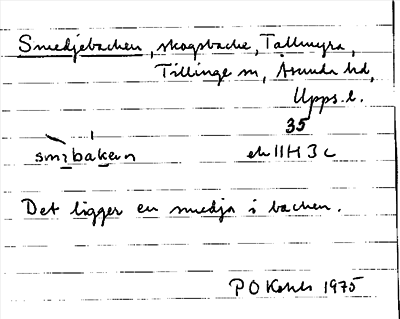 Smedjebacken, skogsbacke, Tallmyra,
Tillinge sn, Åsunda hd,
Upps. l.
35
smɪbakɐn ek 11H 3c
Det ligger en smedja i backen.
P O 1975